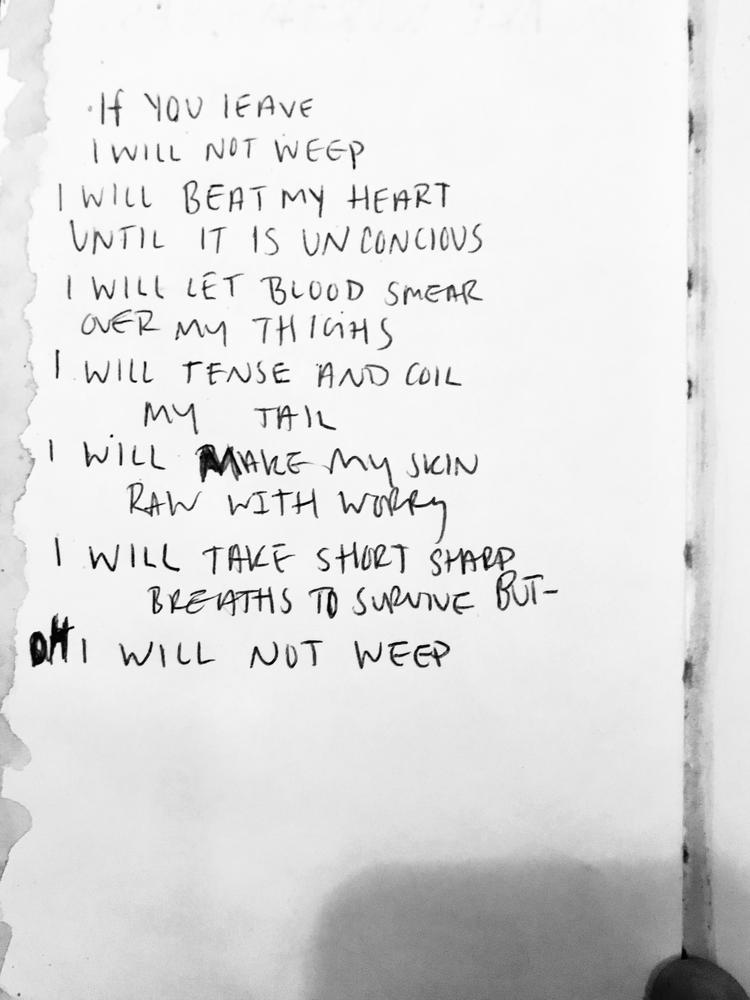 If YOU lEAVE
I WILL NOT WEEP
I WILL BEAT MY HEART
UNTIL IT IS UNCONCIOUS
I WILL LET BLOOD SMEAR
OVER MY THIGHS
I WILL TENSE AND COIL
MY TAIL
I WILL MAKE MY SKIN
RAW WITH WORRY
I WILL TAKE SHORT SHARP
BREATHS TO SURVIVE BUT-
OH I WILL NOT WEEP